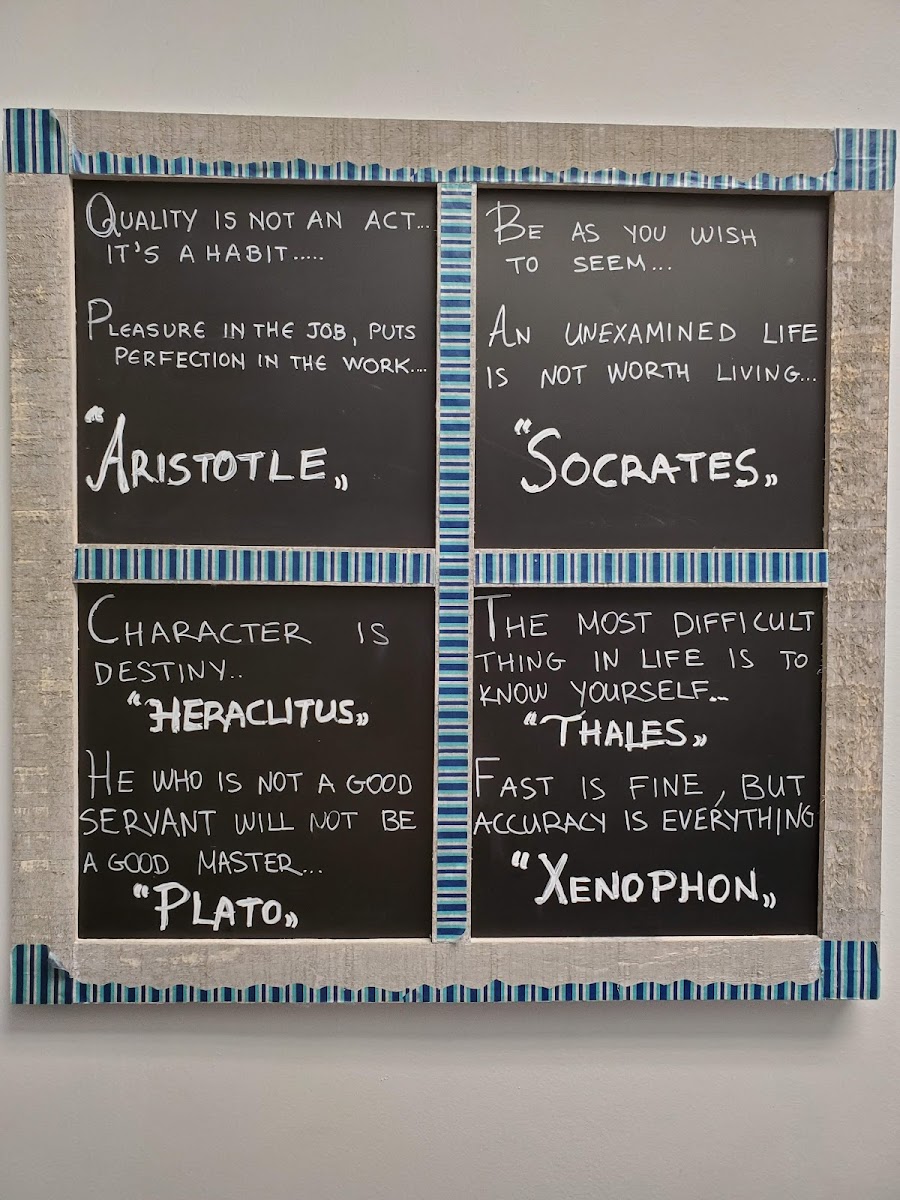 QUALITY IS NOT AN ACT...
IT'S A HABIT.....
PLEASURE IN THE JOB, PUTS
PERFECTION IN THE WORK....
“ARISTOTLE„
BE AS YOU WISH
TO SEEM...
AN UNEXAMINED LIFE
IS NOT WORTH LIVING...
“SOCRATES„
CHARACTER IS
DESTINY..
“HERACLITUS„
HE WHO IS NOT A GOOD
SERVANT WILL NOT BE
A GOOD MASTER...
“PLATO„
THE MOST DIFFICULT
THING IN LIFE IS TO
KNOW YOURSELF...
“THALES„
FAST IS FINE, BUT
ACCURACY IS EVERYTHING
“XENOPHON„